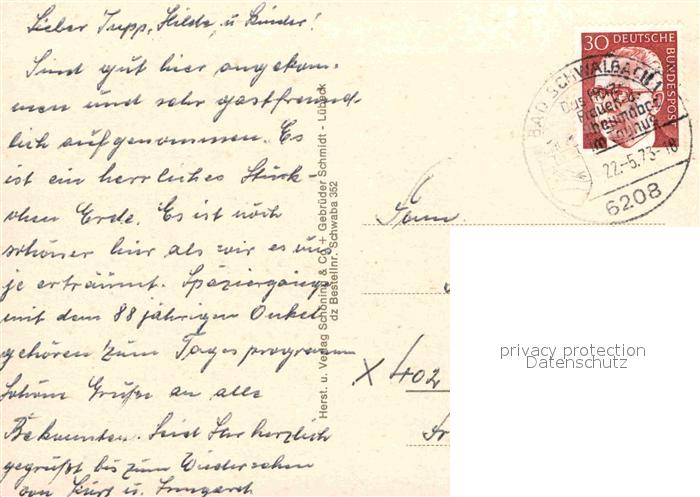 Lieber Jupp, Hilde, u Kinder!
Sind gut hier angekom-
men und sehr gastfreund-
lich aufgenommen. Es
ist ein herrliches Stück-
chen Erde. Es ist noch
schöner hier als wir es uns
je erträumt. Spaziergänge
mit dem 88 jährigen Onkel
gehören zum Tagesprogramm
Schöne Grüße an alle
Bekannten. Seid Ihr herzlich
gegrüßt bis zum Wiedersehen
von Kurt u. Irmgard
Herst. u. Verlag Schöning & Co + Gebrüder Schmidt - Lübeck
dz Bestellnr. Schwaba 352
30 DEUTSCHE
BUNDESPOST
BAD SCHWALBACH 1
Das
Frauen-
im Taunus
22.-5.73-18
6208
Fam.
X 402
privacy protection
Datenschutz